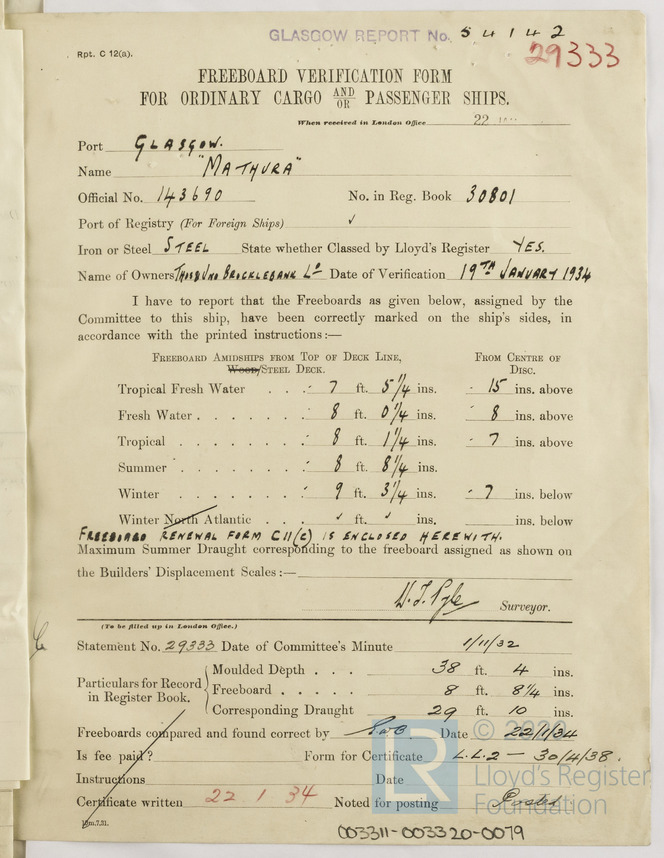 GLASGOW REPORT No. 54142
29333
Rpt. C 12(a).
FREEBOARD VERIFICATION FORM
FOR ORDINARY CARGO AND/OR PASSENGER SHIPS.
When received in London Office 22
Port GLASGOW.
Name "MATHURA"
Official No. 143690 No. in Reg. Book 30801
Port of Registry (For Foreign Ships) ✓
Iron or Steel STEEL State whether Classed by Lloyd's Register YES.
Name of Owners Thos & Jno BROCKLEBANK Ld Date of Verification 19TH JANUARY 1934
I have to report that the Freeboards as given below, assigned by the
Committee to this ship, have been correctly marked on the ship's sides, in
accordance with the printed instructions:—
FREEBOARD AMIDSHIPS FROM TOP OF DECK LINE, FROM CENTRE OF
WOOD/STEEL DECK. DISC.
Tropical Fresh Water . . . 7 ft. 5 1/4 ins. 15 ins. above
Fresh Water . . . . . . . 8 ft. 0 1/4 ins. 8 ins. above
Tropical . . . . . . . . 8 ft. 1 1/4 ins. 7 ins. above
Summer . . . . . . . . 8 ft. 8 1/4 ins.
Winter . . . . . . . . 9 ft. 3 1/4 ins. 7 ins. below
Winter North Atlantic . . . ✓ ft. ✓ ins. ins. below
FREEBOARD RENEWAL FORM C11(c) IS ENCLOSED HEREWITH.
Maximum Summer Draught corresponding to the freeboard assigned as shown on
the Builders' Displacement Scales :—
W. J. Pyle Surveyor.
(To be filled up in London Office.)
Statement No. 29333 Date of Committee's Minute 1/11/32
Particulars for Record in Register Book.
Moulded Depth . . . 38 ft. 4 ins.
Freeboard . . . . . 8 ft. 8 1/4 ins.
Corresponding Draught 29 ft. 10 ins.
Freeboards compared and found correct by Date 22/1/34
Is fee paid? Form for Certificate L.L.2 — 30/4/38.
Instructions Date
Certificate written 22 1 34 Noted for posting Posted
10m.7,31.
LR © 2020
Lloyd's Register
Foundation
003311-003320-0079